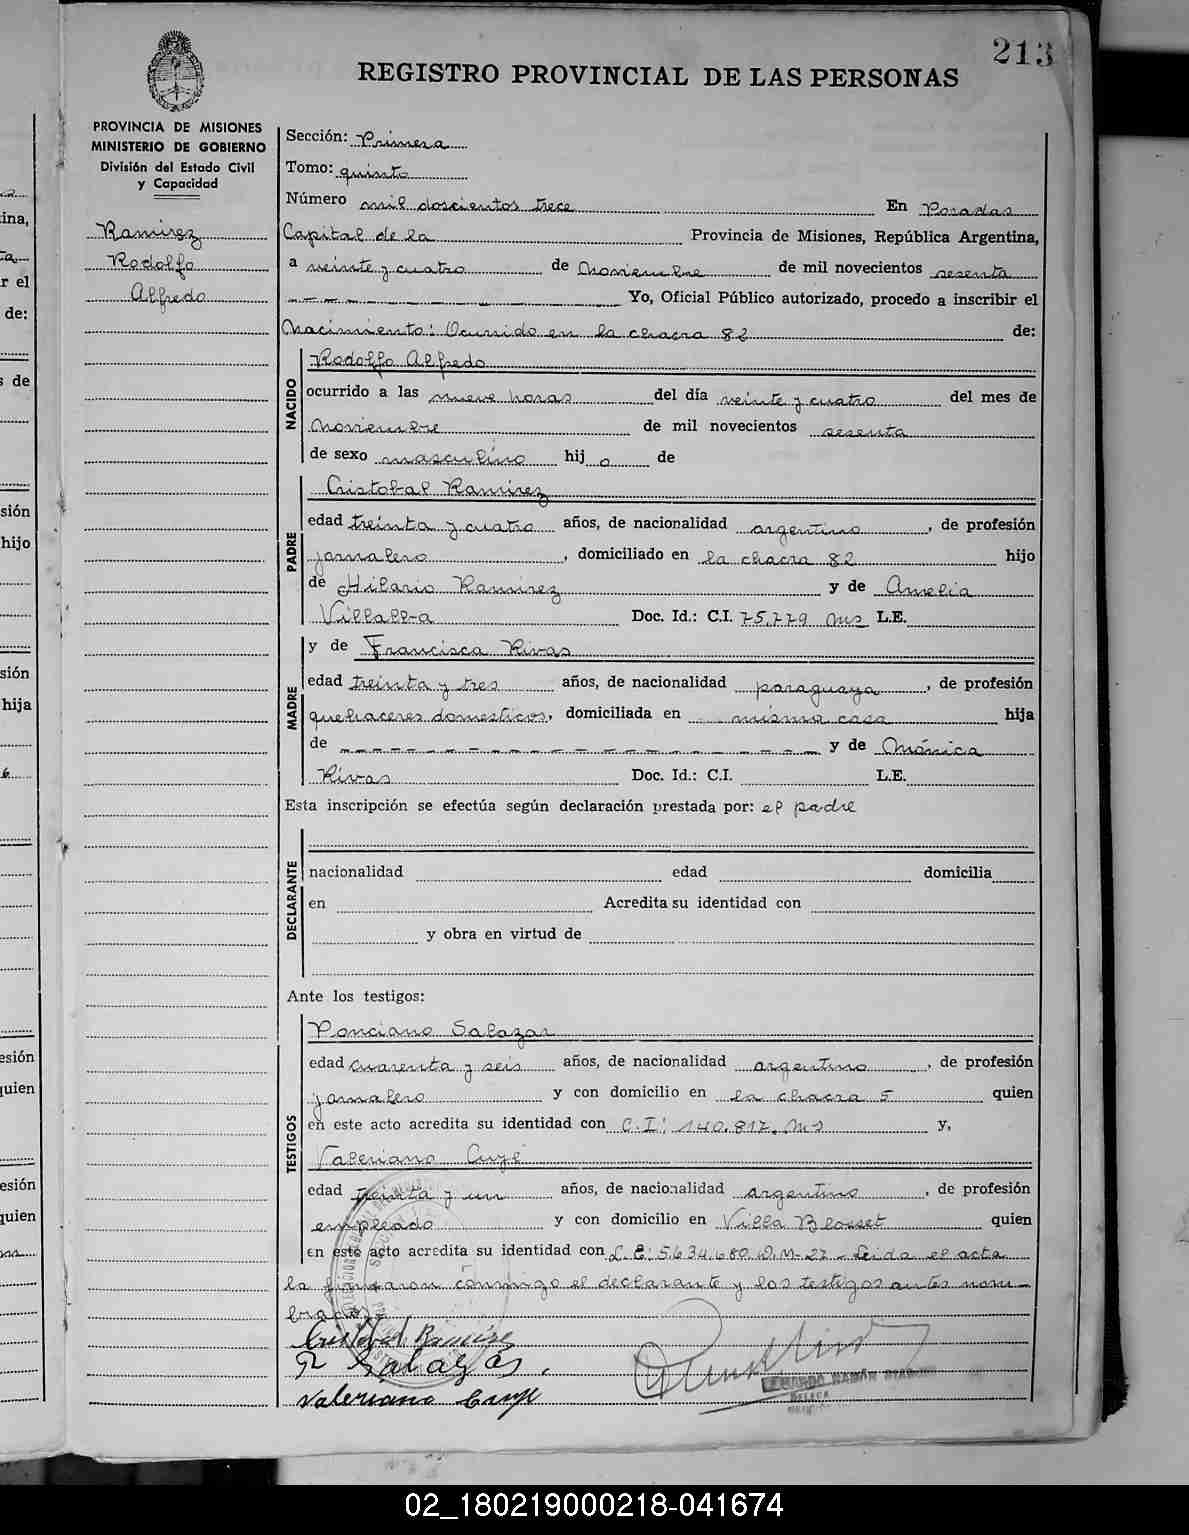 213
REGISTRO PROVINCIAL DE LAS PERSONAS
PROVINCIA DE MISIONES
MINISTERIO DE GOBIERNO
División del Estado Civil
y Capacidad
Ramirez
Rodolfo
Alfredo
Sección: Primera
Tomo: quinto
Número mil doscientos trece En Posadas
Capital de la Provincia de Misiones, República Argentina,
a veinte y cuatro de Noviembre de mil novecientos sesenta
Yo, Oficial Público autorizado, procedo a inscribir el
Nacimiento: Ocurrido en la chacra 82 de:
NACIDO
Rodolfo Alfredo
ocurrido a las nueve horas del día veinte y cuatro del mes de
Noviembre de mil novecientos sesenta
de sexo masculino hij o de
PADRE
Cristobal Ramirez
edad treinta y cuatro años, de nacionalidad argentino, de profesión
jornalero, domiciliado en la chacra 82 hijo
de Hilario Ramirez y de Amelia
Villalba Doc. Id.: C.I. 75.779 Ms L.E.
y de Francisca Rivas
MADRE
edad treinta y tres años, de nacionalidad paraguaya, de profesión
quehaceres domesticos, domiciliada en misma casa hija
de y de Mónica
Rivas Doc. Id.: C.I. L.E.
Esta inscripción se efectúa según declaración prestada por: el padre
DECLARANTE
nacionalidad edad domicilia
en Acredita su identidad con
y obra en virtud de
Ante los testigos:
TESTIGOS
Ponciano Salazar
edad cuarenta y seis años, de nacionalidad argentino, de profesión
jornalero y con domicilio en la chacra 5 quien
en este acto acredita su identidad con C.I: 140.817. Ms y,
Valeriano
edad treinta y un años, de nacionalidad argentino, de profesión
empleado y con domicilio en Villa Blosset quien
en este acto acredita su identidad con L.E: 5.634.680 D.M-27 - Leida el acta
la firmaron conmigo el declarante y los testigos antes nom-
brados
Cristobal Ramirez
P Salazar
Valeriano
RAMÓN
02_180219000218-041674